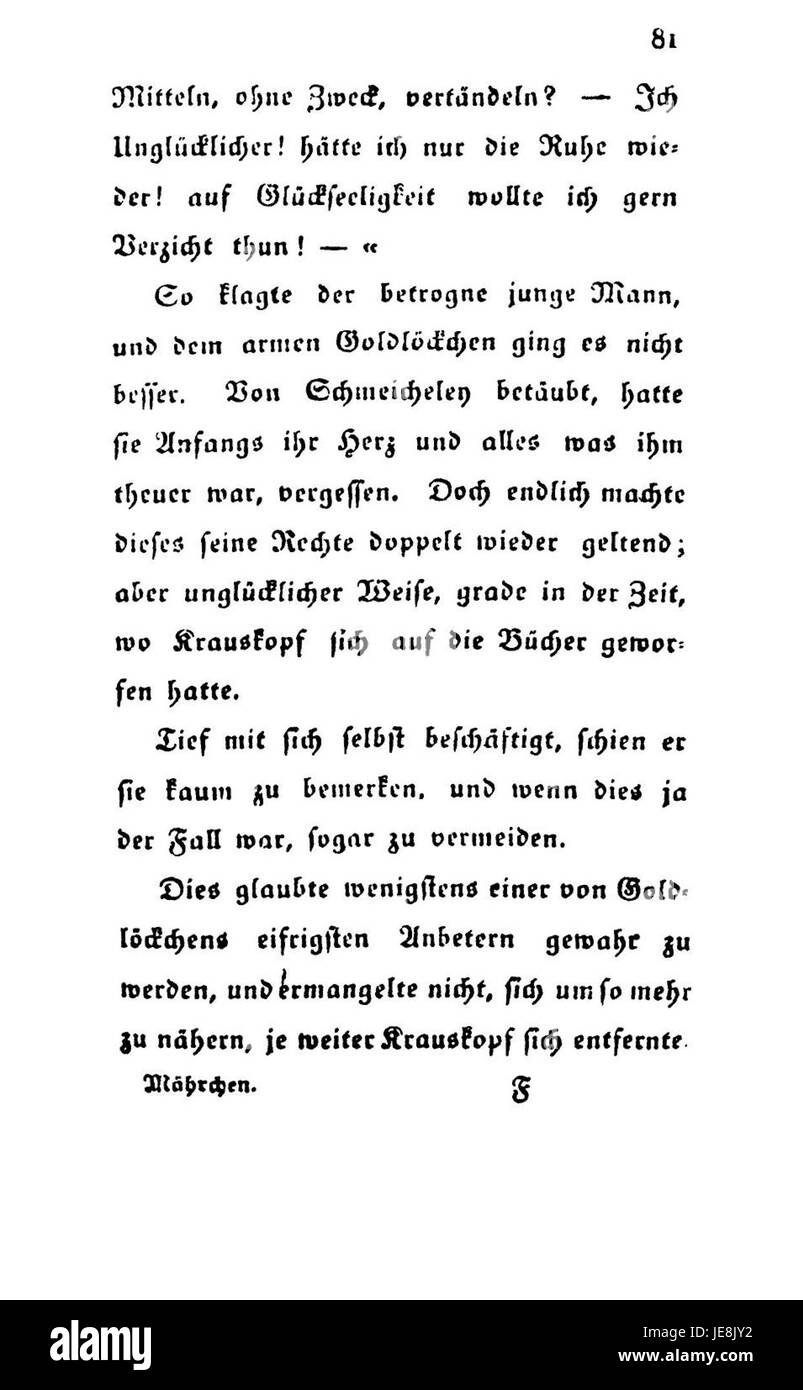 81
Mitteln, ohne Zweck, vertändeln? — Ich
Unglücklicher! hätte ich nur die Ruhe wie⸗
der! auf Glückseeligkeit wollte ich gern
Verzicht thun! — «
So klagte der betrogne junge Mann,
und dem armen Goldlöckchen ging es nicht
besser. Von Schmeicheley betäubt, hatte
sie Anfangs ihr Herz und alles was ihm
theuer war, vergessen. Doch endlich machte
dieses seine Rechte doppelt wieder geltend;
aber unglücklicher Weise, grade in der Zeit,
wo Krauskopf sich auf die Bücher gewor⸗
fen hatte.
Tief mit sich selbst beschäftigt, schien er
sie kaum zu bemerken, und wenn dies ja
der Fall war, sogar zu vermeiden.
Dies glaubte wenigstens einer von Gold⸗
löckchens eifrigsten Anbetern gewahr zu
werden, und ermangelte nicht, sich um so mehr
zu nähern, je weiter Krauskopf sich entfernte.
Mährchen. F
alamy
Image ID: JE8JY2
www.alamy.com